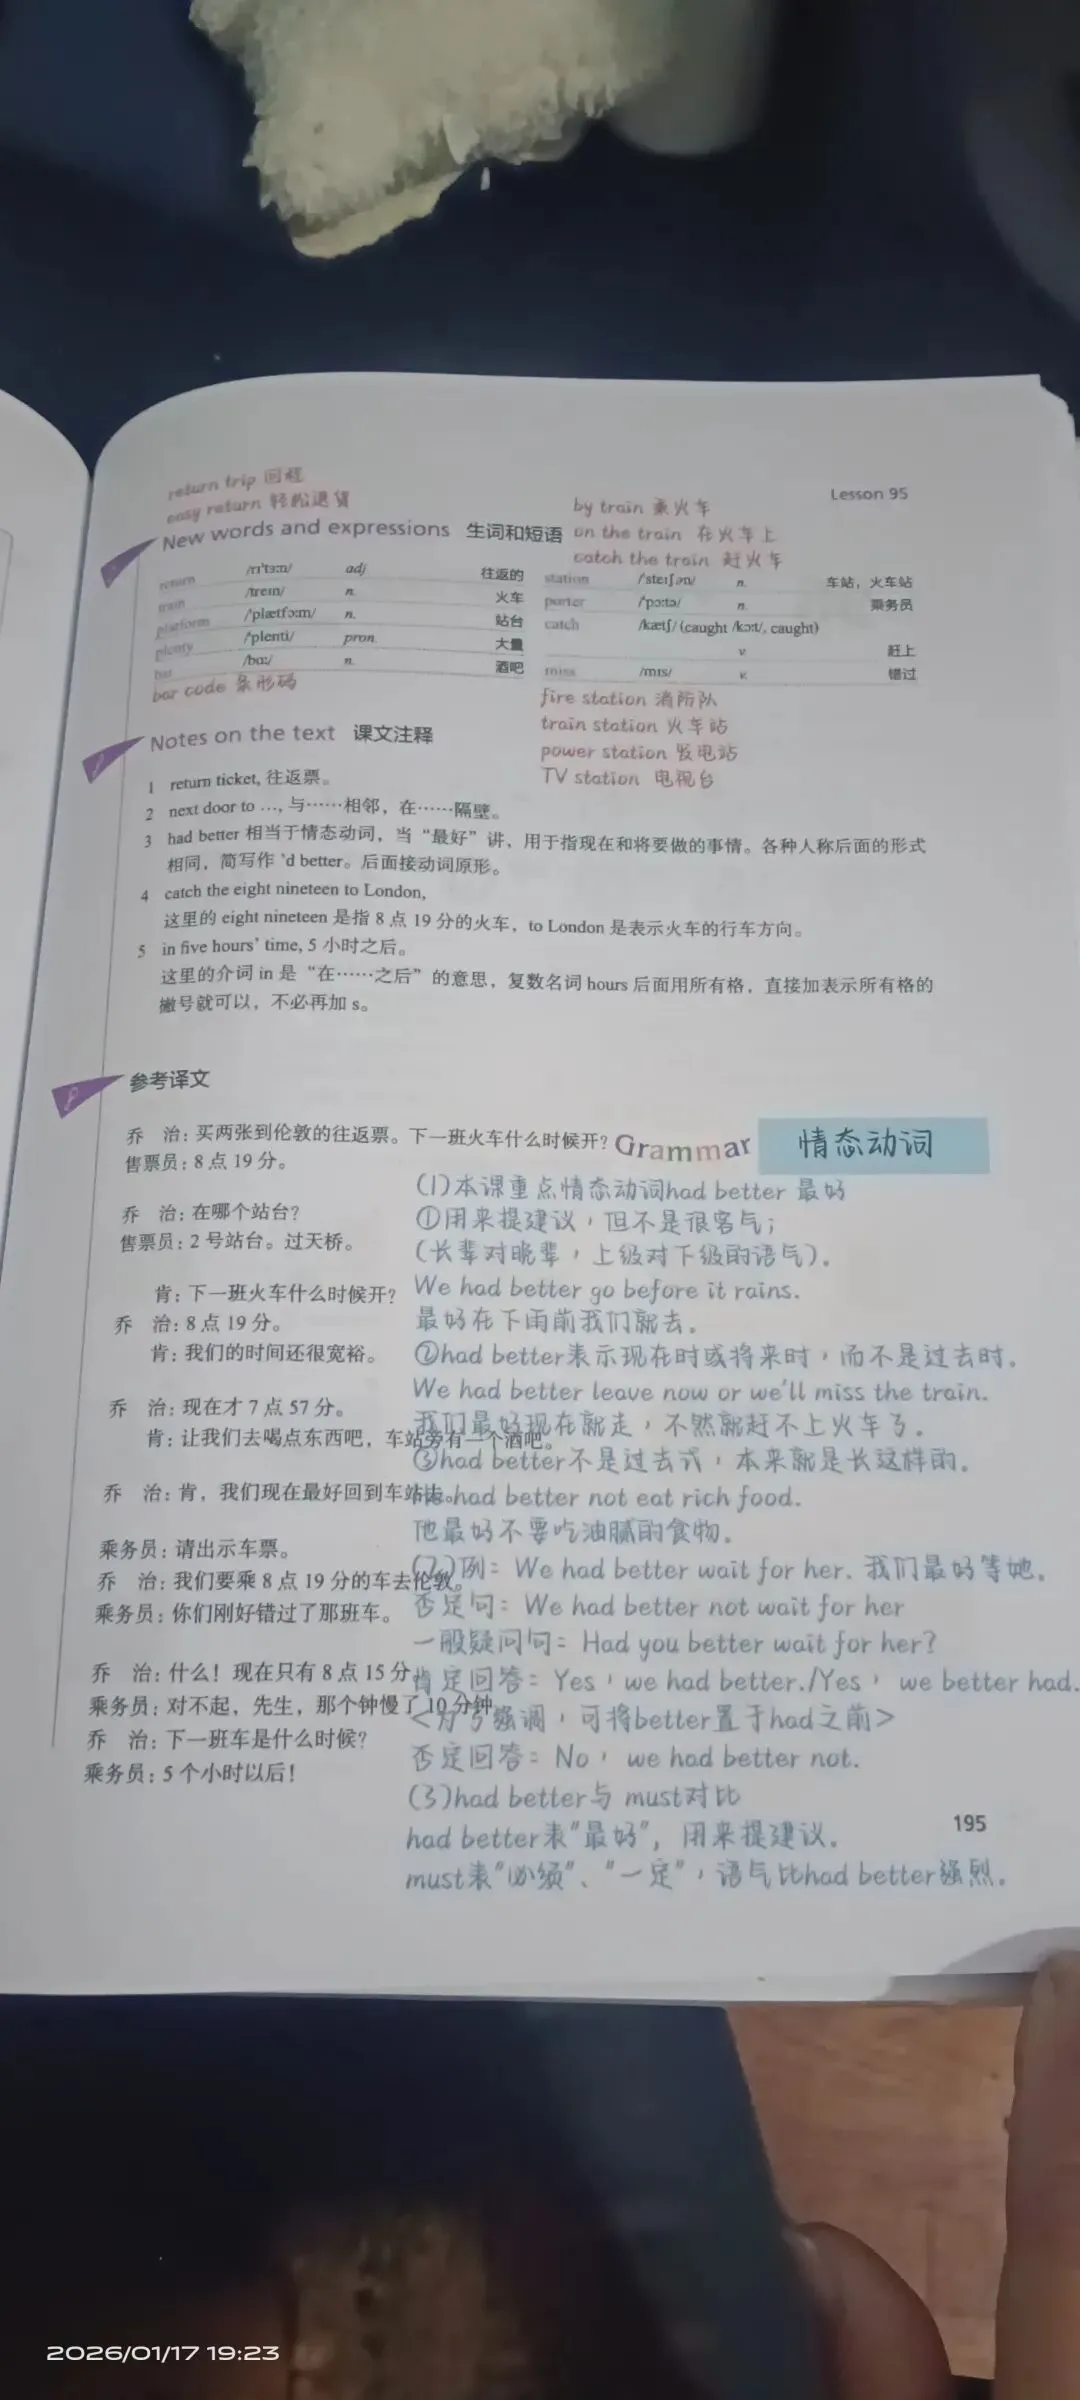 return trip 回程
easy return 轻松退货
Lesson 95
by train 乘火车
on the train 在火车上
catch the train 赶火车
New words and expressions 生词和短语
return /rɪ'tɜ:n/ adj 往返的
train /treɪn/ n. 火车
platform /'plætfɔ:m/ n. 站台
plenty /'plenti/ pron. 大量
bar /bɑ:/ n. 酒吧
station /'steɪʃən/ n. 车站，火车站
porter /'pɔ:tə/ n. 乘务员
catch /kætʃ/ (caught /kɔ:t/, caught)
v. 赶上
miss /mɪs/ v. 错过
bar code 条形码
fire station 消防队
train station 火车站
power station 发电站
TV station 电视台
Notes on the text 课文注释
1 return ticket, 往返票。
2 next door to …, 与……相邻，在……隔壁。
3 had better 相当于情态动词，当“最好”讲，用于指现在和将要做的事情。各种人称后面的形式
相同，简写作 'd better。后面接动词原形。
4 catch the eight nineteen to London,
这里的 eight nineteen 是指 8 点 19 分的火车，to London 是表示火车的行车方向。
5 in five hours' time, 5 小时之后。
这里的介词 in 是“在……之后”的意思，复数名词 hours 后面用所有格，直接加表示所有格的
撇号就可以，不必再加 s。
参考译文
乔 治: 买两张到伦敦的往返票。下一班火车什么时候开?
售票员: 8 点 19 分。
乔 治: 在哪个站台?
售票员: 2 号站台。过天桥。
肯: 下一班火车什么时候开?
乔 治: 8 点 19 分。
肯: 我们的时间还很宽裕。
乔 治: 现在才 7 点 57 分。
肯: 让我们去喝点东西吧，车站旁有一个酒吧。
乔 治: 肯，我们现在最好回到车站去。
乘务员: 请出示车票。
乔 治: 我们要乘 8 点 19 分的车去伦敦。
乘务员: 你们刚好错过了那班车。
乔 治: 什么! 现在只有 8 点 15 分
乘务员: 对不起，先生，那个钟慢了 10 分钟
乔 治: 下一班车是什么时候?
乘务员: 5 个小时以后!
Grammar 情态动词
(1)本课重点情态动词had better 最好
①用来提建议，但不是很客气；
(长辈对晚辈，上级对下级的语气)。
We had better go before it rains.
最好在下雨前我们就去。
②had better表示现在时或将来时，而不是过去时。
We had better leave now or we'll miss the train.
我们最好现在就走，不然就赶不上火车了。
③had better不是过去式，本来就是长这样的。
had better not eat rich food.
他最好不要吃油腻的食物。
(2)例: We had better wait for her. 我们最好等她。
否定句: We had better not wait for her
一般疑问句: Had you better wait for her?
肯定回答: Yes，we had better./Yes，we better had.
<为了强调，可将better置于had之前>
否定回答: No，we had better not.
(3)had better与 must对比
had better表"最好"，用来提建议.
must表"必须"、"一定"，语气比had better强烈。
195
2026/01/17 19:23